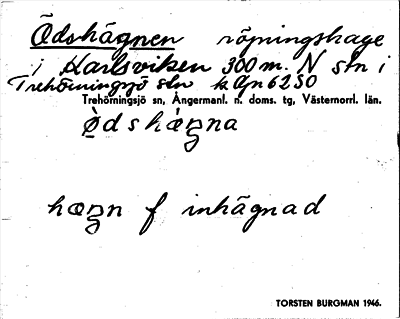 Ödshägnen röjningshage
i Karlsviken 300 m. N stn i
Trehörningsjö stn k Ap 6250
Trehörningsjö sn, Ångermanl. n. doms. tg, Västernorrl. län.
ò̤dshæ̀gna
hægn f inhägnad
TORSTEN BURGMAN 1946.